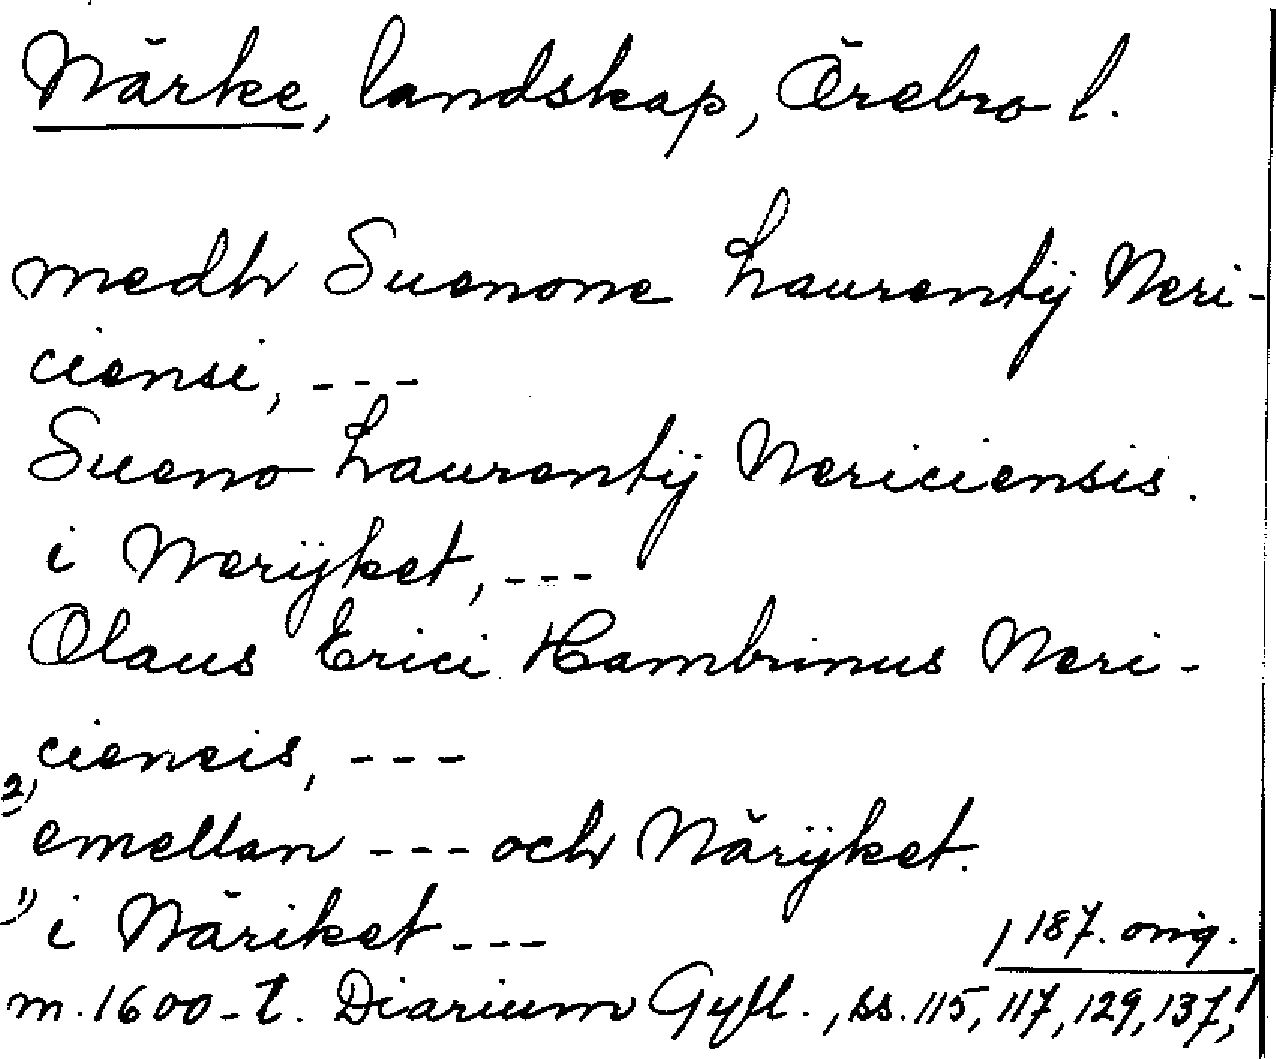 Närke, landskap, Örebro l.
medh Suenone Laurentij Neri-
ciensi, ---
Sueno Laurentij Nericiensis.
i Nerijket, ---
Olaus Erici Hambrinus Neri-
ciensis, ---
2) emellan --- och Närijket.
1) i Näriket ---
187. orig.
m. 1600-t. Diarium Gyll., ss. 115, 117, 129, 137,